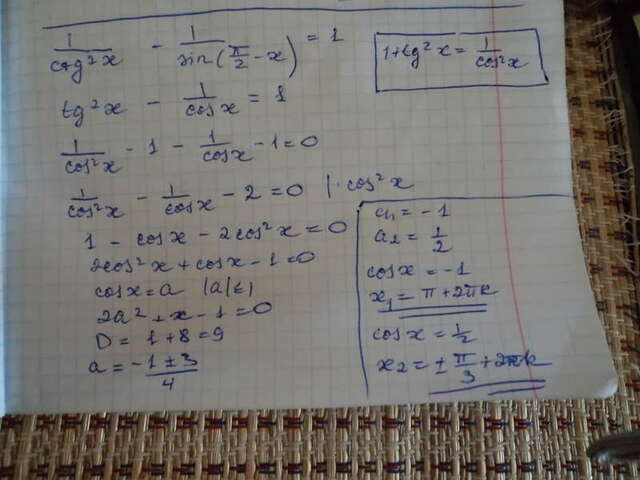 1/ctg²x - 1/sin(π/2 - x) = 1
1+tg²x = 1/cos²x
tg²x - 1/cosx = 1
1/cos²x - 1 - 1/cosx - 1 = 0
1/cos²x - 1/cosx - 2 = 0 |· cos²x
1 - cosx - 2cos²x = 0
2cos²x + cosx - 1 = 0
cosx = a |a|≤1
2a² + x - 1 = 0
D = 1 + 8 = 9
a = (-1 ± 3)/4
a₁ = -1
a₂ = 1/2
cosx = -1
x₁ = π + 2πk
cosx = 1/2
x₂ = ± π/3 + 2πk